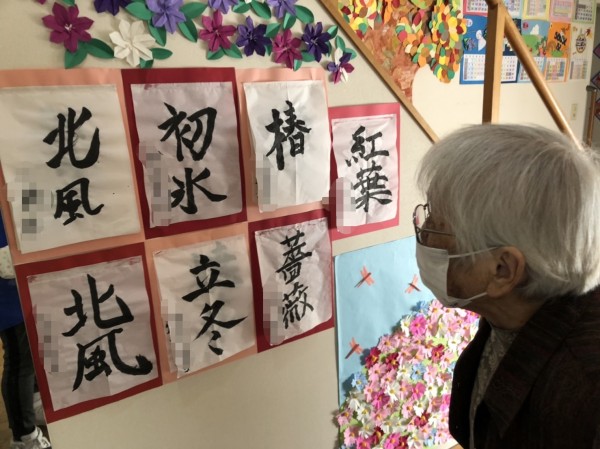 北風
初氷
椿
紅葉
北風
立冬
薔薇